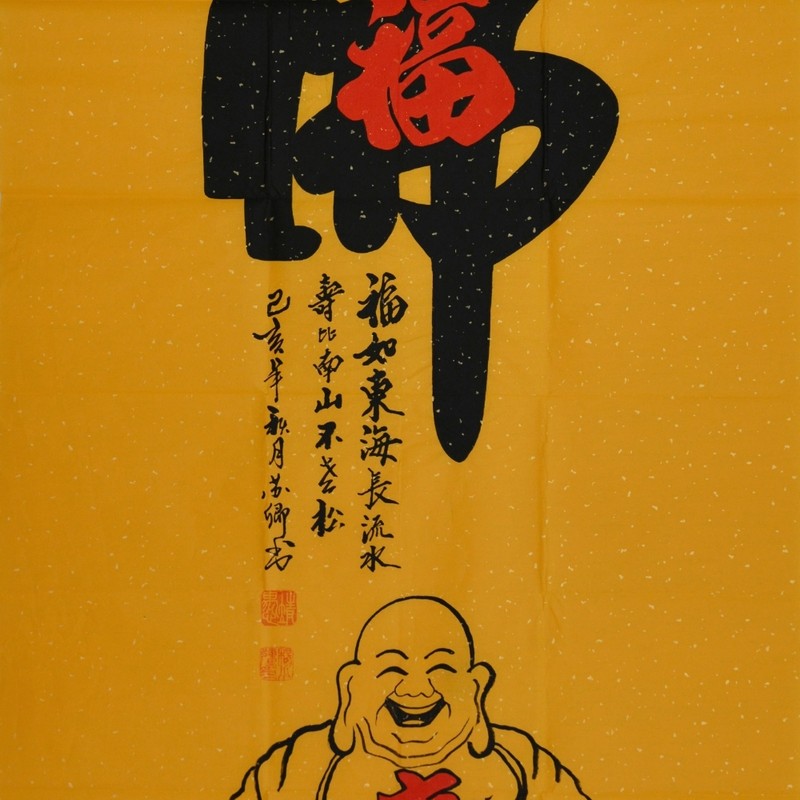 佛
福
福如東海長流水
壽比南山不老松
己亥年秋月苏卿书